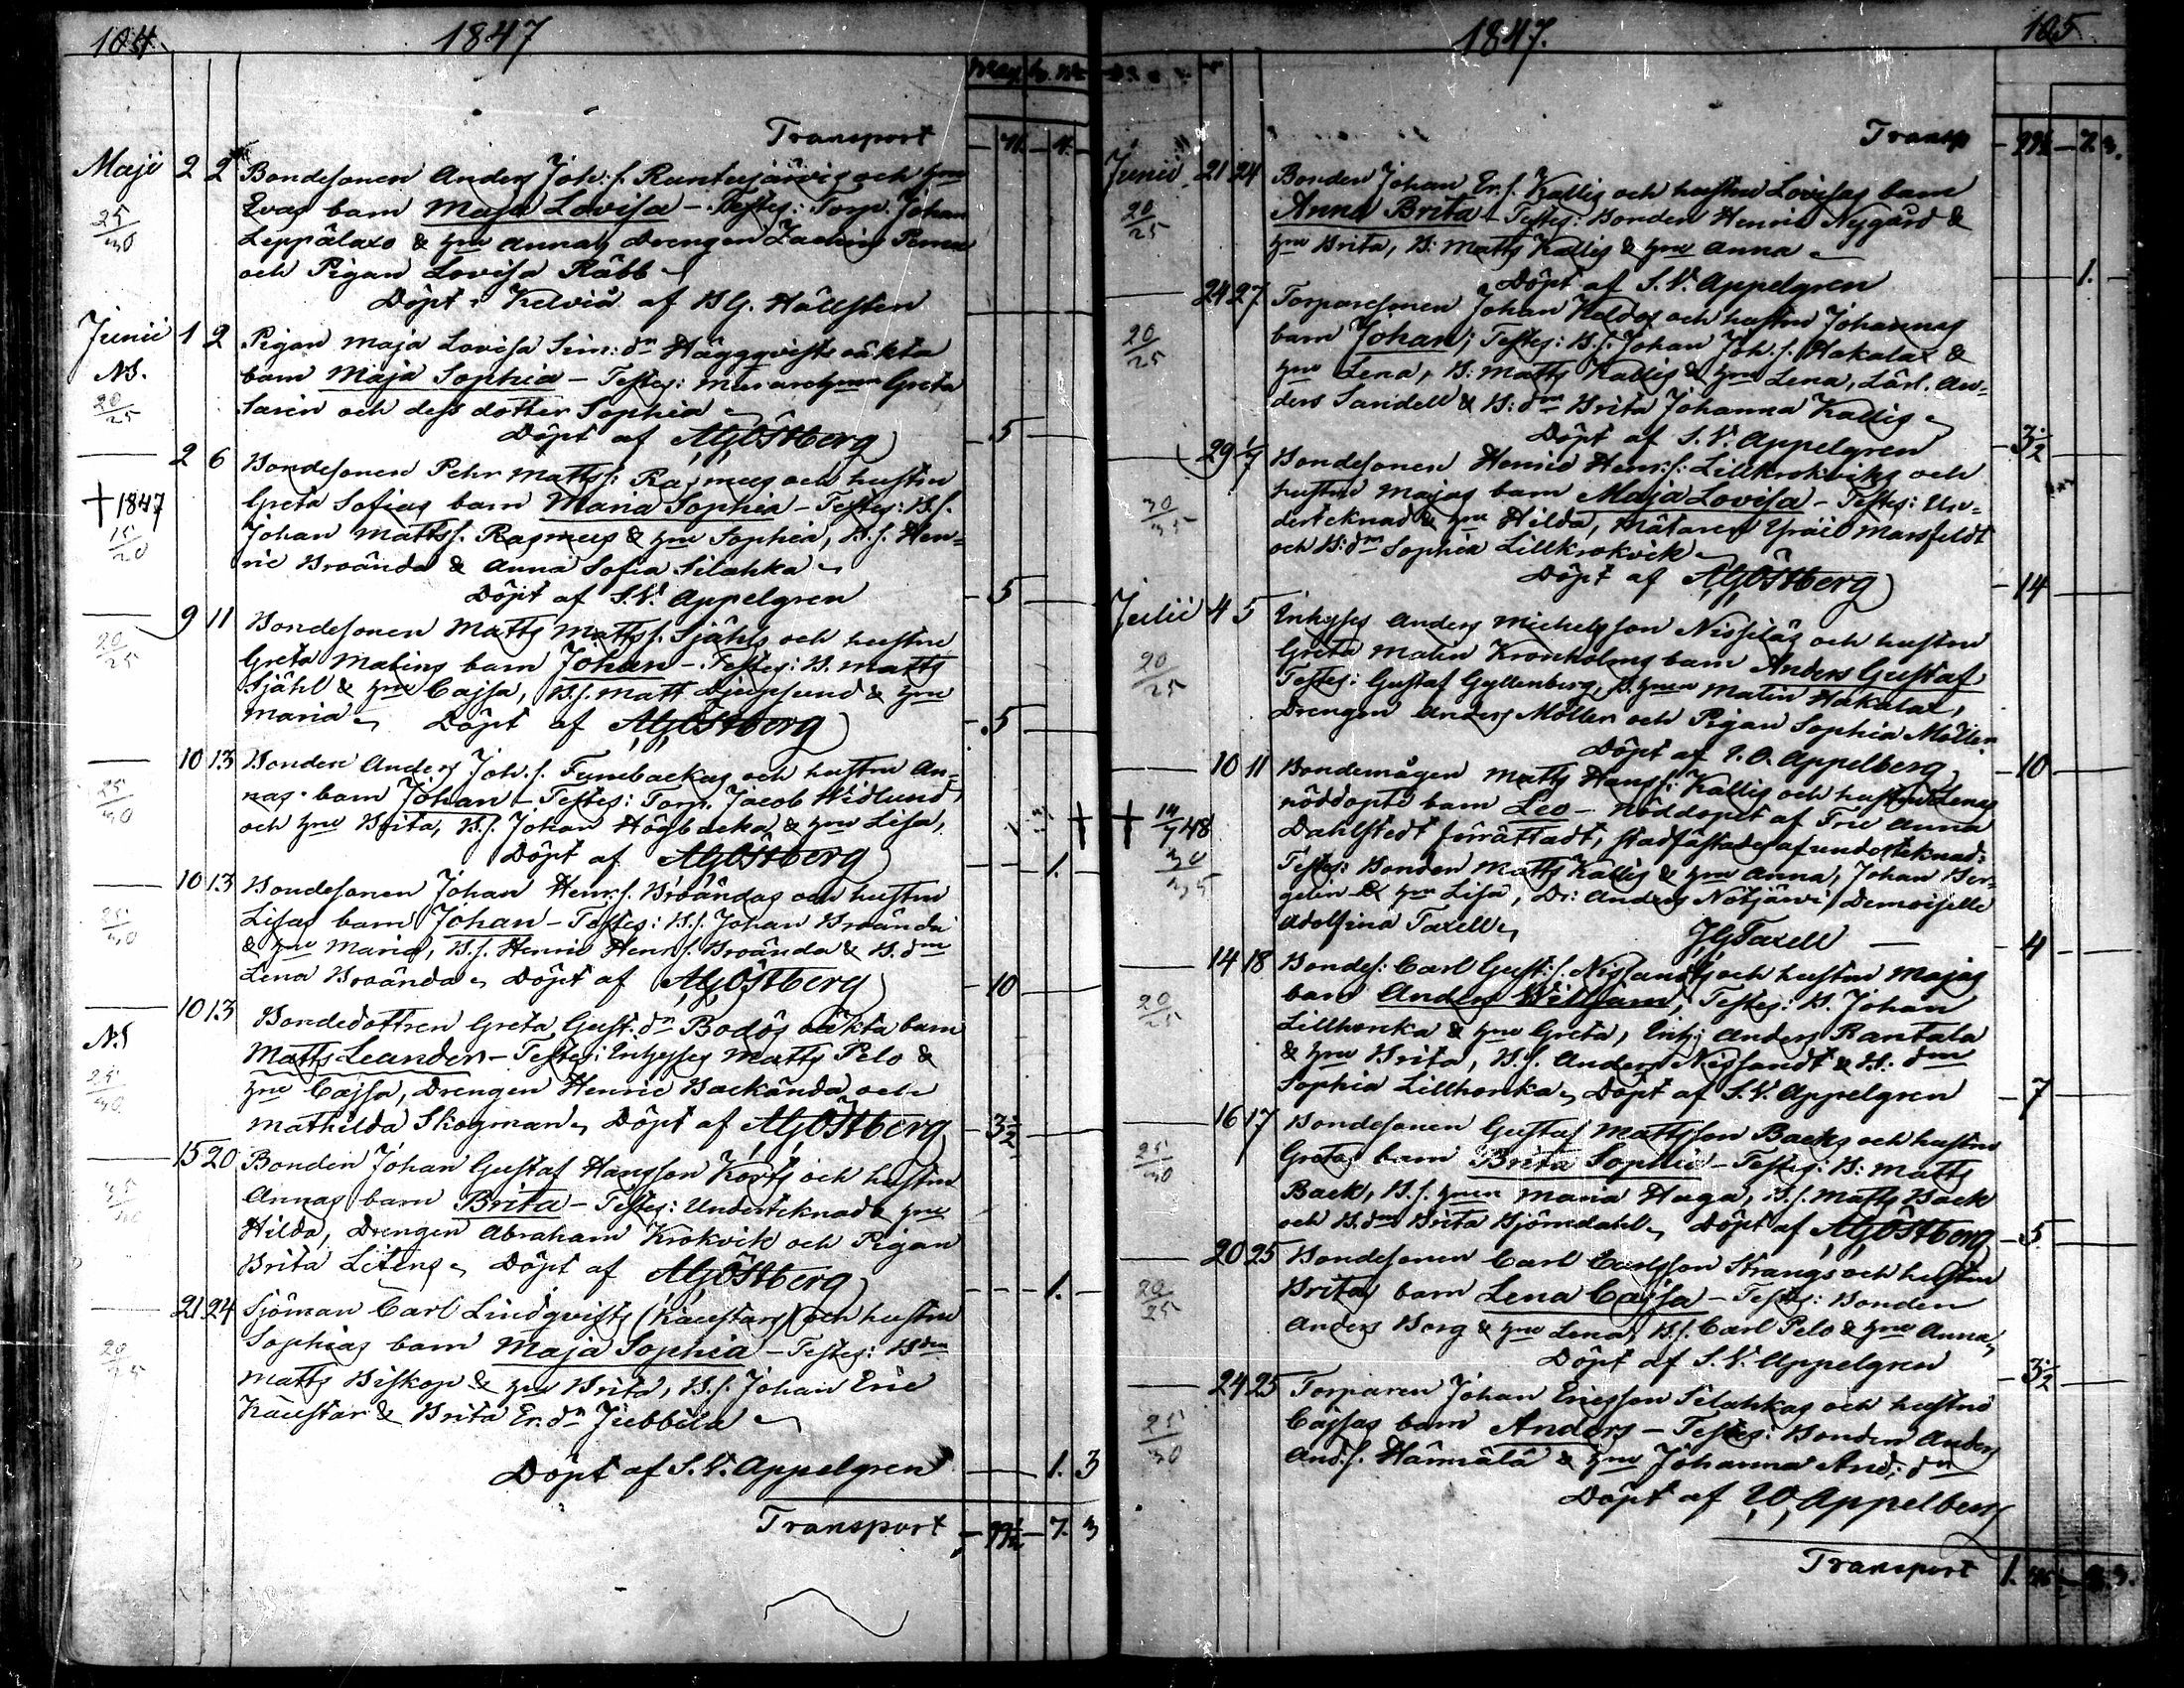 104. 1847
Transport
Maji 2 2 Bondesonen Anders Joh: s. Runtujärvis och hru
25/30 Evas barn Maja Lovisa - Testes: Torp. Johan
Leppälaxo & hru Anna, Drengen Zachris Pema
och Pigan Lovisa Räbb
Döpt i Kelviå af B G. Hällsten
Junii 1 2 Pigan Maja Lovisa Sim: dr Häggqvists oäkta
NB. barn Maja Sophia - Testes: Murarehrun Greta
20/25 Sarin och dess dotter Sophia
Döpt af AGÖstberg 5
2 6 Bondesonen Pehr Mattss: Rasmus och hustru
† 1847 Greta Sofias barn Maria Sophia - Testes: B.s.
15/20 Johan Mattss. Rasmus & hru Sophia, B.s. Hen=
ric Broända & Anna Sofia Silahka
Döpt af S.V. Appelgren 5
9 11 Bondesonen Matts Mattss. Sjähls och hustru
20/25 Greta Malins barn Johan - Testes: B. Matts
Sjähl & hru Cajsa, B.s. Matt Djupsund & hru
Maria Döpt af AGÖstberg 5
10 13 Bonden Anders Joh. s. Furubackas och hustru An=
25/30 nas barn Johan - Testes: Torp. Jacob Widlund
och hru Brita, B.s. Johan Högbacka & hru Lisa, †
Döpt af AGÖstberg 1.
10 13 Bondesonen Johan Henr. s. Broändas och hustru
25/30 Lisas barn Johan - Testes: B.s. Johan Broända
& hru Maria, B.s. Henric Henr s. Broända & B. dr
Lena Broända Döpt af AGÖstberg 10
10 13 Bondedottren Greta Gust. dr Bodös oäkta barn
NB Matts Leander - Testes: Inhyses Matts Pelo &
25/30 hru Cajsa, Drengen Henric Backända och
Mathilda Skogman Döpt af AGÖstberg 3 1/2
15 20 Bonden Johan Gustaf Hansson Korts och hustru
35/40 Annas barn Brita - Testes: Undertecknad & hru
Hilda, Drengen Abraham Krokvik och Pigan
Brita Litens Döpt af AGÖstberg 1.
21 24 Sjöman Carl Lindqvists (Kaustars) och hustru
20/25 Sophias barn Maja Sophia - Testes: Bdn
Matts Biskop & hru Brita, B.s. Johan Eric
Kaustar & Brita Er. dr Jubbila
Döpt af S.V. Appelgren 1. 3
Transport 99 1/2 7. 3
1847. 105
Transp 99 1/2 7. 3.
Junii 21 24 Bonden Johan Er. s. Kallis och hustru Lovisas barn
20/25 Anna Brita - Testes: Bonden Henric Nygård &
hru Brita, B: Matts Kallis & hru Anna
Döpt af S.V. Appelgren 1.
24 27 Torparesonen Johan Keldos och hustru Johannas
20/25 barn Johan; Testes: B.s. Johan Joh. s. Hakalax &
hru Lena, B: Matts Kallis & hru Lena, Lärl. An=
ders Sandell & B: dr Brita Johanna Kallis
Döpt af S.V. Appelgren 3 1/2
29 1/7 Bondesonen Henric Henr: s: Lillkrokviks och
30/35 hustru Majas barn Maja Lovisa - Testes: Un=
dertecknad & hru Hilda, Mätaren Yrail Marsfeldt
och B: dr Sophia Lillkrokvik
Döpt af AGÖstberg 14
Julii 4 5 Inhyses Anders Michelsson Nissiläs och hustru
20/25 Greta Malin Kronholms barn Anders Gustaf
Testes: Gustaf Gyllenberg, B. hrun Malin Hakalax,
Drengen Anders Möller och Pigan Sophia Möller
Döpt af V. O. Appelberg 10
10 11 Bondemågen Matts Hanss: Kallis och hustru Lenas
† 14/7 48 nöddöpte barn Leo - Nöddopet af Fru Anna
30/35 Dahlstedt förättadt, stadfästades af undertecknad:
Testes: Bonden Matts Kallis & hru Anna, Johan Ber=
gelin & hru Lisa, Dr: Anders Nötjärvi, Demoiselle
Adolfina Taxell
JGTaxell 4
14 18 Bondes: Carl Gust: s. Nissands och hustru Majas
20/25 barn Anders Wilhjam, Testes: B. Johan
Lillhonka & hru Greta, Inh: Anders Rantala
& hru Brita, B.s. Anders Nissandt & B: dr
Sophia Lillhonka Döpt af S.V. Appelgren 7
16 17 Bondesonen Gustaf Mattsson Backs och hustru
25/30 Gretas barn Brita Sophia - Testes: B: Matts
Back, B.s. hrun Maria Haga, B.s. Matts Back
och B. dr Brita Björndahl Döpt af AGÖstberg 5
20 25 Bondesonen Carl Carlsson Strangs och hustru
20/25 Britas barn Lena Cajsa - Testes: Bonden
Anders Borg & hru Lena, B.s. Carl Pelo & hru Anna
Döpt af S.V. Appelgren 3 1/2
24 25 Torparen Johan Ericsson Silahkas och hustru
25/30 Cajsas barn Anders - Testes: Bonden Anders
And. s. Hannälä & hru Johanna And: dr
Döpt af VO Appelberg
Transport 1. 8. 3.